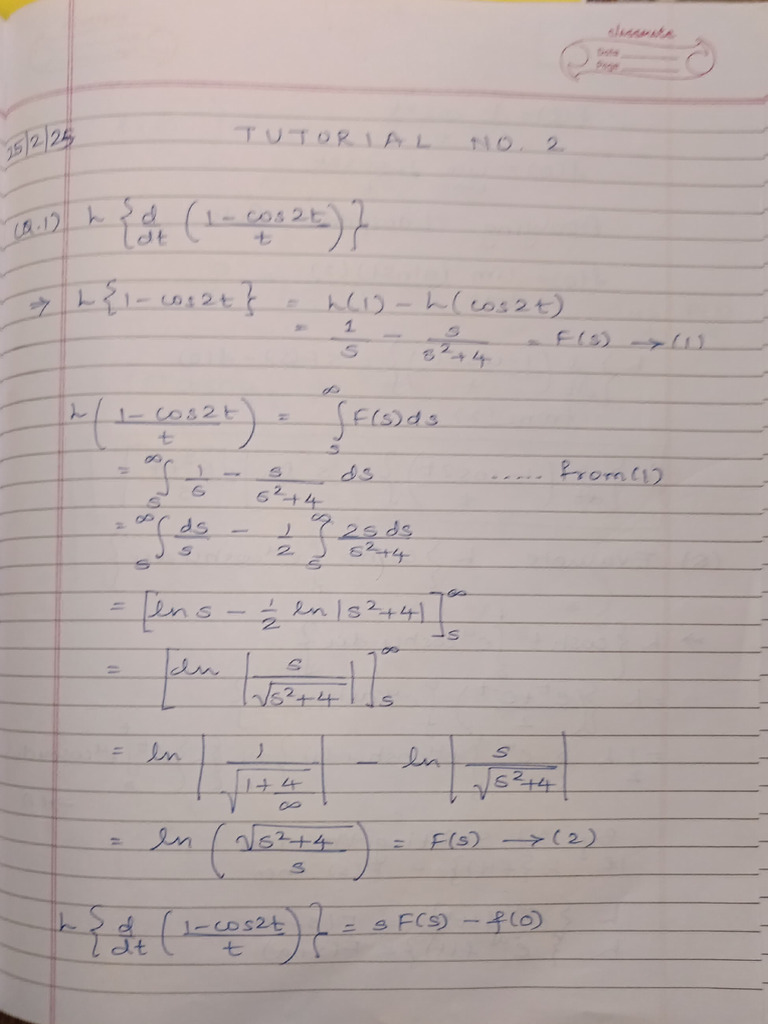 classmate
Date
Page
25/2/25
TUTORIAL NO. 2
(Q.1) L{d/dt ((1-cos2t)/t)}
⇒ L{1-cos2t} = L(1) - L(cos2t)
= 1/s - s/(s²+4) = F(s) → (1)
L((1-cos2t)/t) = ∫_s^∞ F(s)ds
= ∫_s^∞ 1/s - s/(s²+4) ds ..... from(1)
= ∫_s^∞ ds/s - 1/2 ∫_s^∞ 2s ds/(s²+4)
= [ln s - 1/2 ln|s²+4|]_s^∞
= [ln |s/√(s²+4)|]_s^∞
= ln |1/√(1+4/∞)| - ln |s/√(s²+4)|
= ln (√(s²+4)/s) = F(s) → (2)
L{d/dt ((1-cos2t)/t)} = s F(s) - f(0)